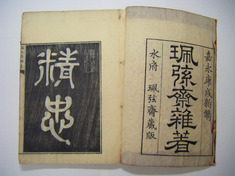 嘉永庚戌新鐫
珮弦齋雜著
水府 珮弦齋藏版
精忠